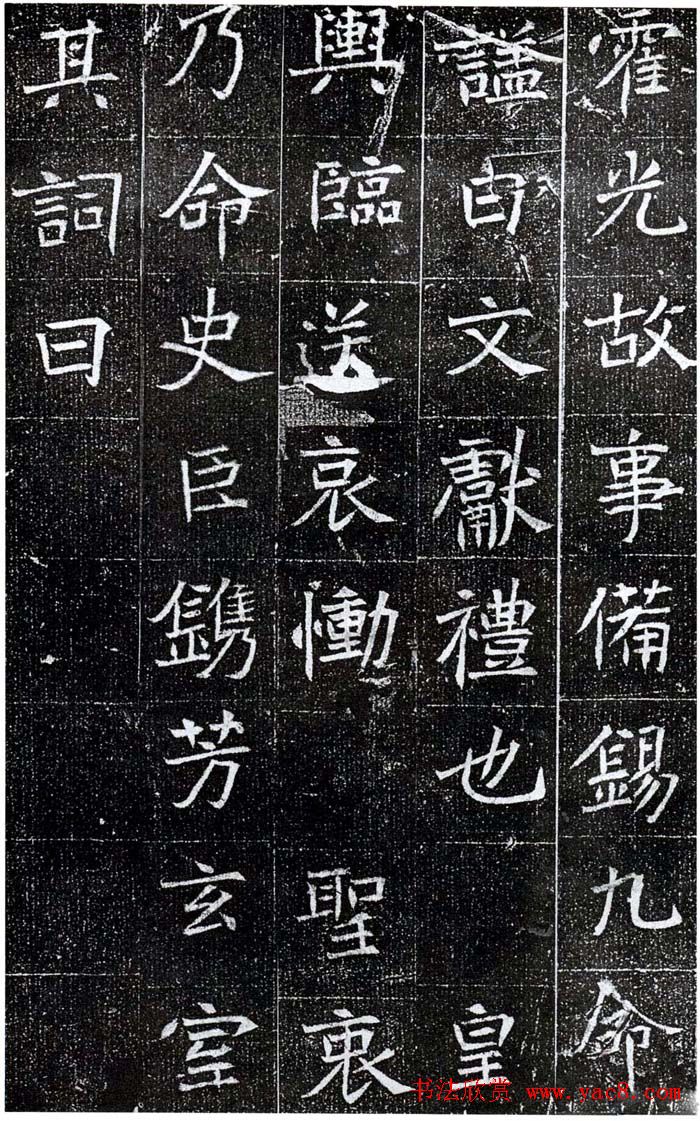 霍光故事備錫九命
謚曰文獻禮也皇
輿臨送哀慟聖衷
乃命史臣鐫芳玄室
其詞曰
书法欣赏 www.yac8.com